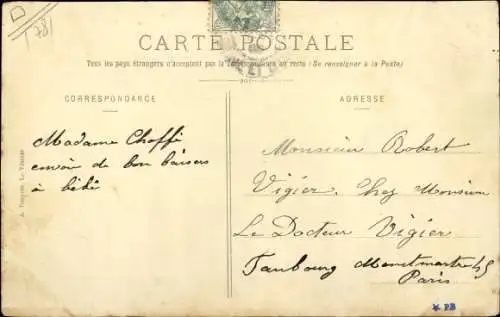 D
78
CARTE POSTALE
Tous les pays étrangers n'acceptent pas la Correspondance au recto (Se renseigner à la Poste)
CORRESPONDANCE
ADRESSE
Madame Choffé
envoie de bon baisers
à bébé
Monsieur Robert
Vigier. Chez Monsieur
Le Docteur Vigier
Faubourg Montmartre 45
Paris
PB